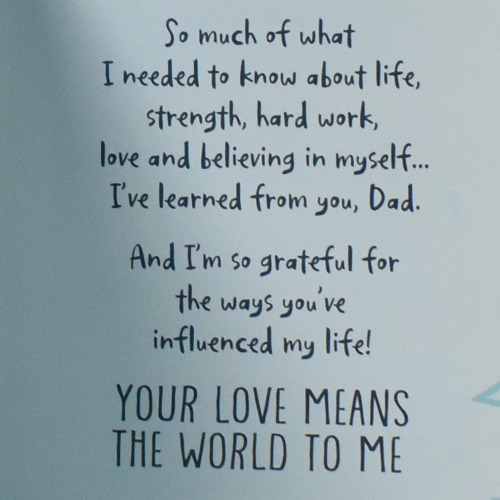 So much of what
I needed to know about life,
strength, hard work,
love and believing in myself...
I've learned from you, Dad.
And I'm so grateful for
the ways you've
influenced my life!
YOUR LOVE MEANS
THE WORLD TO ME